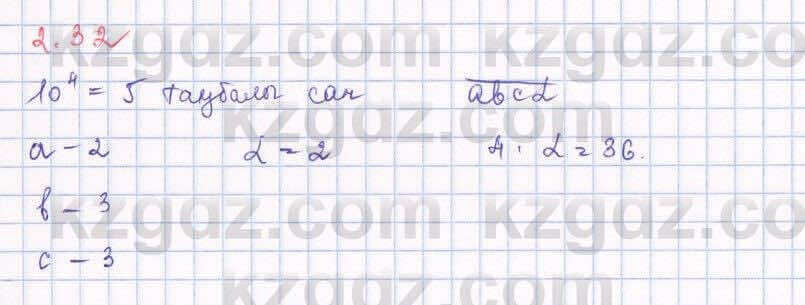 2.32
10⁴ = 5 таңбалы сан	a̅b̅c̅d̅
a - 2	d = 2	4 · d = 36.
b - 3
c - 3
kzgdz.com kzgdz.com
kzgdz.com
kzgdz.com kzgdz.com
kzgdz.com